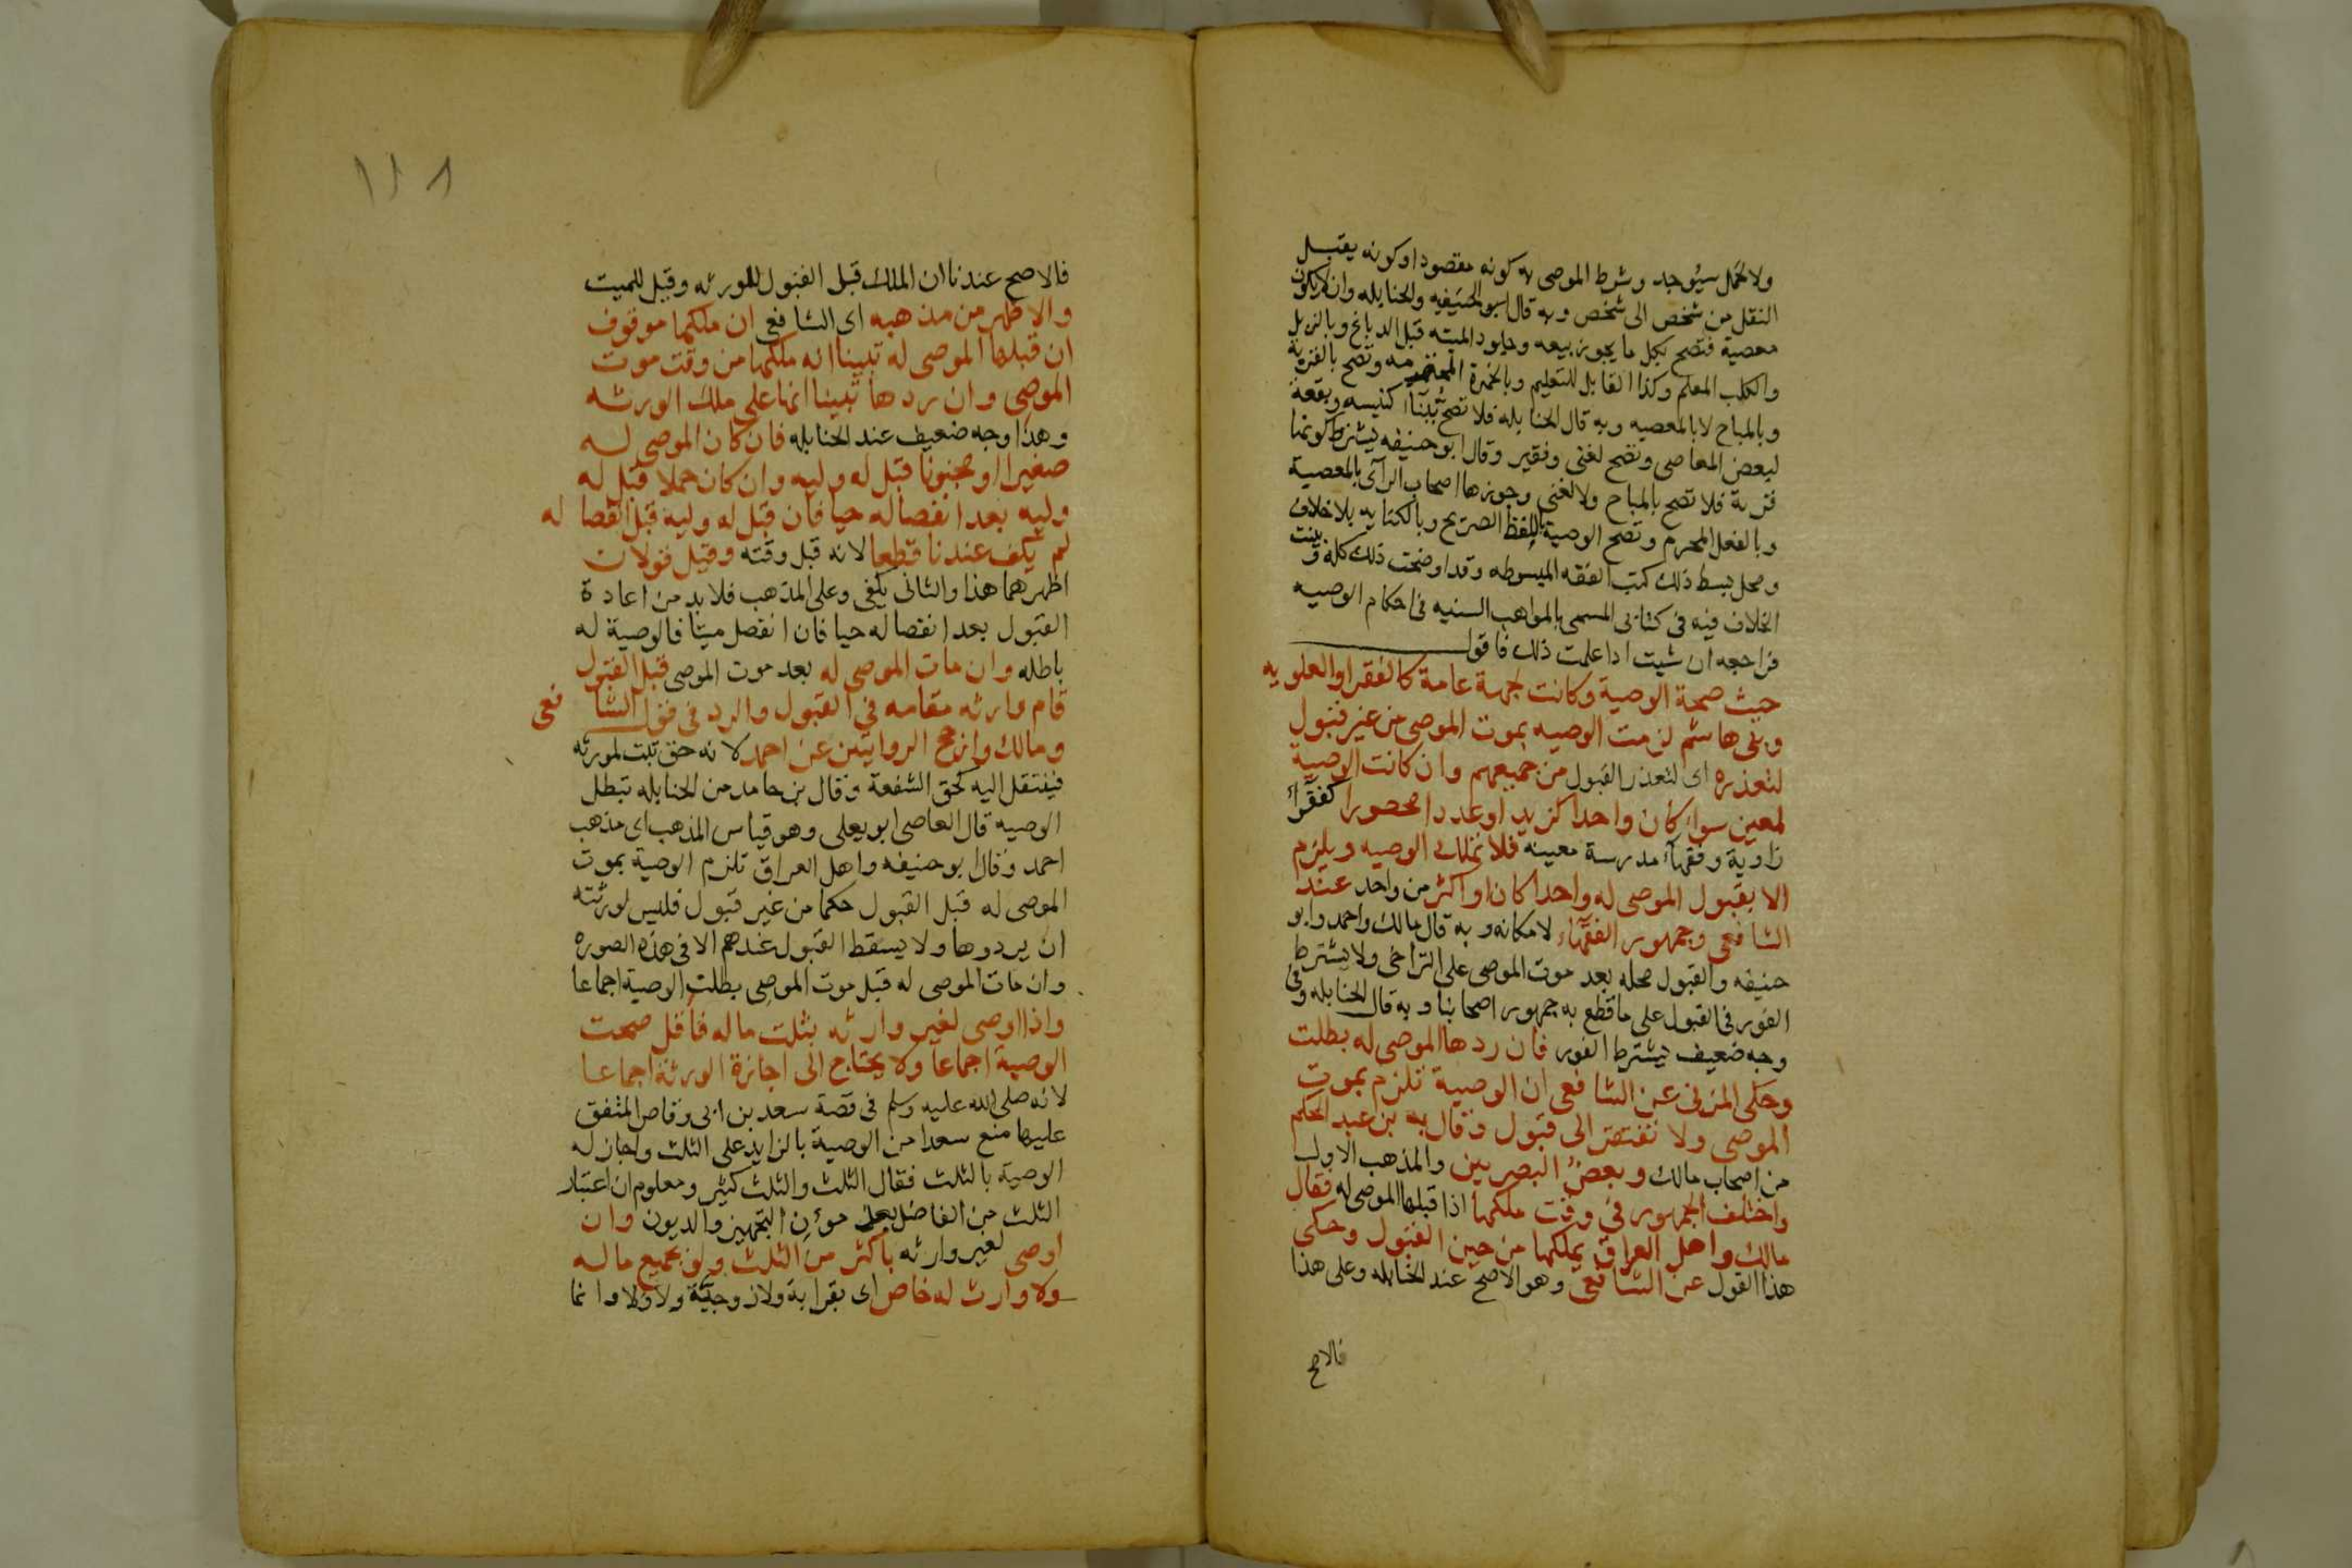 ولا لحمل سيوجد وشرط الموصى به كونه مقصودا وكونه يقبل
النقل من شخص الى شخص وبه قال ابو الحنيفه والحنابله وان لايكون
معصية فتصح بكل ما يجوز بيعه وجلود الميته قبل الدباغ وبالزبل
والكلب المعلم وكذا القابل للتعليم وبالخمرة المحترمه وتصح بالقربة
وبالمباح لا بالمعصيه وبه قال الحنابله فلا تصح ببنآ كنيسه وبقعة
لبعض المعاصى وتصح لغنى وفقير وقال ابو حنيفه يشترط كونها
قربة فلا تصح بالمباح ولا لغنى وجوزها اصحاب الرآى بالمعصية
وبالفعل المحرم وتصح الوصية باللفظ الصريح وبالكنايه بلا خلاف
ومحل بسط ذلك كتب الفقه المبسوطه وقد اوضحت ذلك كله وبينت
الخلاف فيه فى كتابى المسمى بالمواهب السنيه فى احكام الوصيه
فراجعه ان شيت اذا علمت ذلك فاقول
حيث صحة الوصية وكانت لجهة عامة كالفقرا والعلويه
وبنى هاشم لزمت الوصيه بموت الموصى من غير قبول
لتعذره اى لتعذر القبول من جميعهم وان كانت الوصية
لمعين سواء كان واحدا كزيد او عددا محصورا كفقرآء
زاوية وفقهآء مدرسة معينه فلا تملك الوصيه ويلزم
الا بقبول الموصى له واحدا كان او اكثر من واحد عند
الشافعى وجمهور الفقهآء لامكانه وبه قال مالك واحمد وابو
حنيفه والقبول محله بعد موت الموصى على التراخى ولا يشترط
الفور فى القبول على ما قطع به جمهور اصحابنا وبه قال الحنابله وفى
وجه ضعيف يشترط الفور فان ردها الموصى له بطلت
وحكى المزنى عن الشافعى ان الوصية تلزم بموت
الموصى ولا تفتقر الى قبول وقال به بن عبد الحكم
من اصحاب مالك وبعض البصريين والمذهب الاول
واختلف الجمهور فى وقت ملكها اذا قبلها الموصى له فقال
مالك واهل العراق يملكها من حين القبول وحكى
هذا القول عن الشافعى وهو الاصح عند الحنابله وعلى هذا
فالاصح
١١٨
فالاصح عندنا ان الملك قبل القبول للورثه وقيل للميت
والاظهر من مذهبه اى الشافعى ان ملكها موقوف
ان قبلها الموصى له تبينا انه ملكها من وقت موت
الموصى وان ردها تبينا انها على ملك الورثه
وهذا وجه ضعيف عند الحنابله فان كان الموصى له
صغيرا او مجنونا قبل له وليه وان كان حملا قبل له
وليه بعد انفصاله حيا فان قبل له وليه قبل انفصاله
لم يكف عندنا قطعا لانه قبل وقته وقيل قولان
اظهرهما هذا والثانى يكفى وعلى المذهب فلا بد من اعادة
القبول بعد انفصاله حيا فان انفصل ميتا فالوصية له
باطله وان مات الموصى له بعد موت الموصى قبل القبول
قام وارثه مقامه فى القبول والرد فى قول الشافعى
ومالك وارجح الروايتين عن احمد لانه حق تبت لمورثه
فينتقل اليه كحق الشفعة وقال بن حامد من الحنابله تبطل
الوصيه قال القاصى ابو يعلى وهو قياس المذهب اى مذهب
احمد وقال ابو حنيفه واهل العراق تلزم الوصية بموت
الموصى له قبل القبول حكما من غير قبول فليس لورثته
ان يردوها ولا يسقط القبول عندهم الا فى هذه الصوره
وان مات الموصى له قبل موت الموصى بطلت الوصية اجماعا
واذا اوصى لغير وارثه بثلث ماله فاقل صحت
الوصية اجماعا ولا يحتاج الى اجازة الورثة اجماعا
لانه صلى الله عليه وسلم فى قصة سعد بن ابى وقاص المتفق
عليها منع سعدا من الوصية بالزايد على الثلث واجاز له
الوصية بالثلث فقال الثلث والثلث كثير ومعلوم ان اعتبار
الثلث من الفاضل بعد مؤن التجهيز والديون وان
اوصى لغير وارثه باكثر من الثلث ولو بجميع ماله
ولا وارث له خاص اى بقرابة ولا زوجية ولا ولا وانما